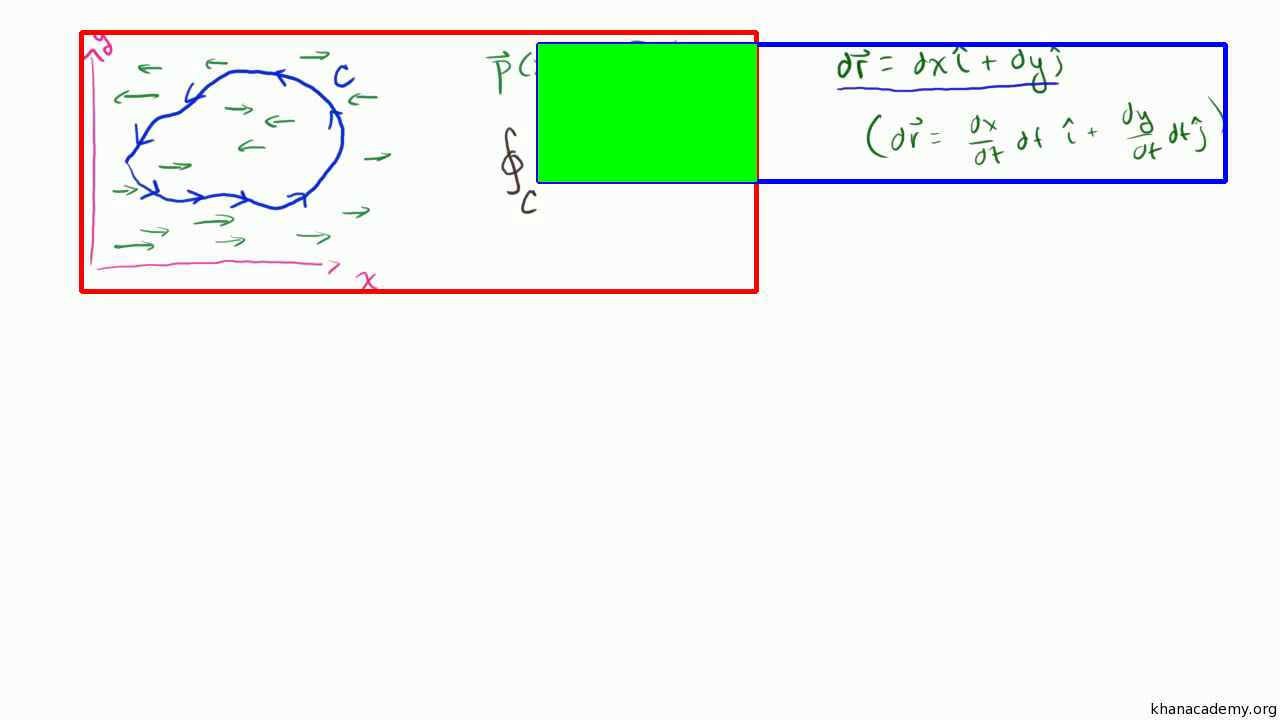 y
C
x
p⃗(
∮
C
dr⃗ = dx î + dy ĵ
(dr⃗ = dx/dt dt î + dy/dt dt ĵ)
khanacademy.org